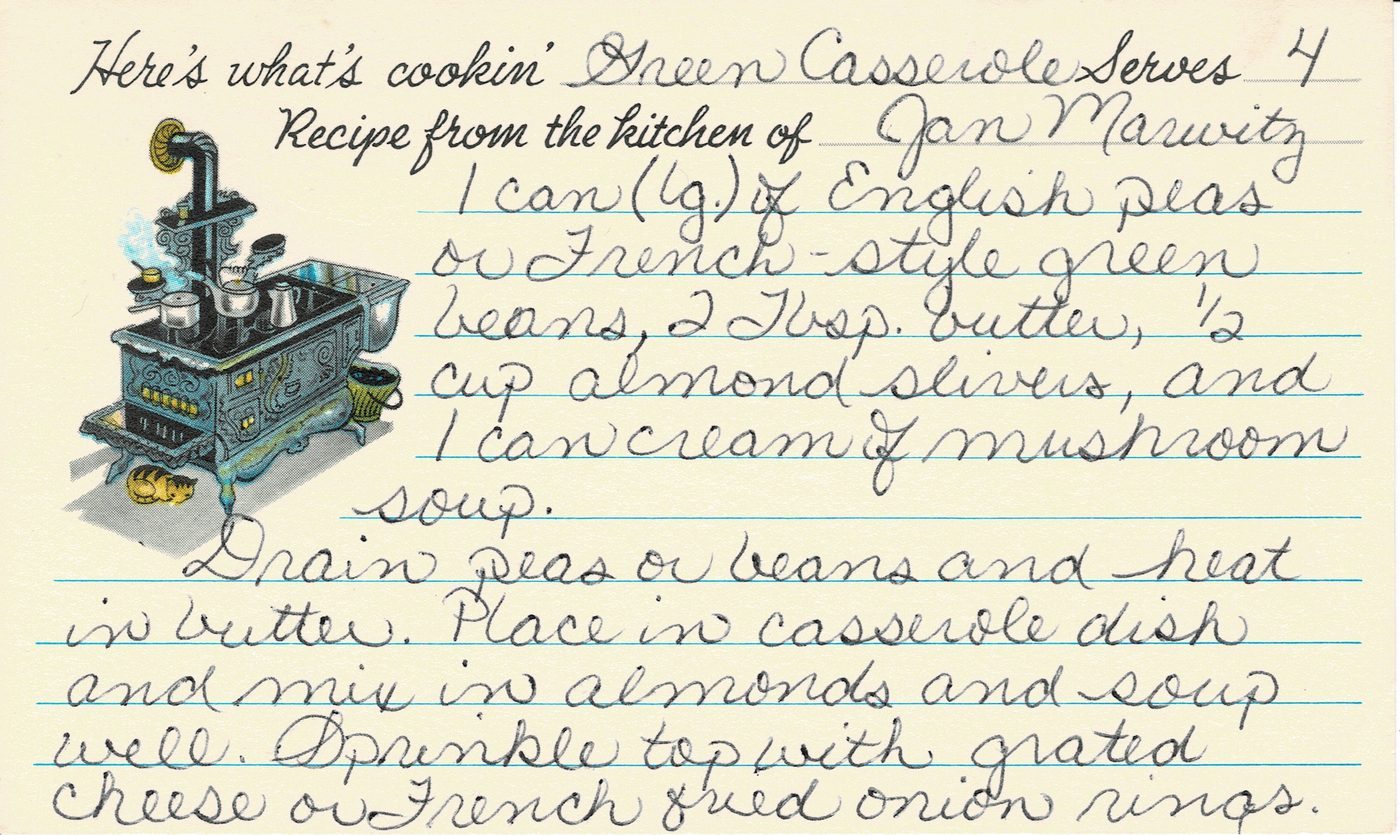 Here's what's cookin' Green Casserole Serves 4
Recipe from the kitchen of Jan Marwitz
1 can (lg.) of English peas
or French-style green
beans, 2 Tbsp. butter, 1/2
cup almond slivers, and
1 can cream of mushroom
soup.
Drain peas or beans and heat
in butter. Place in casserole dish
and mix in almonds and soup
well. Sprinkle top with grated
cheese or French fried onion rings.